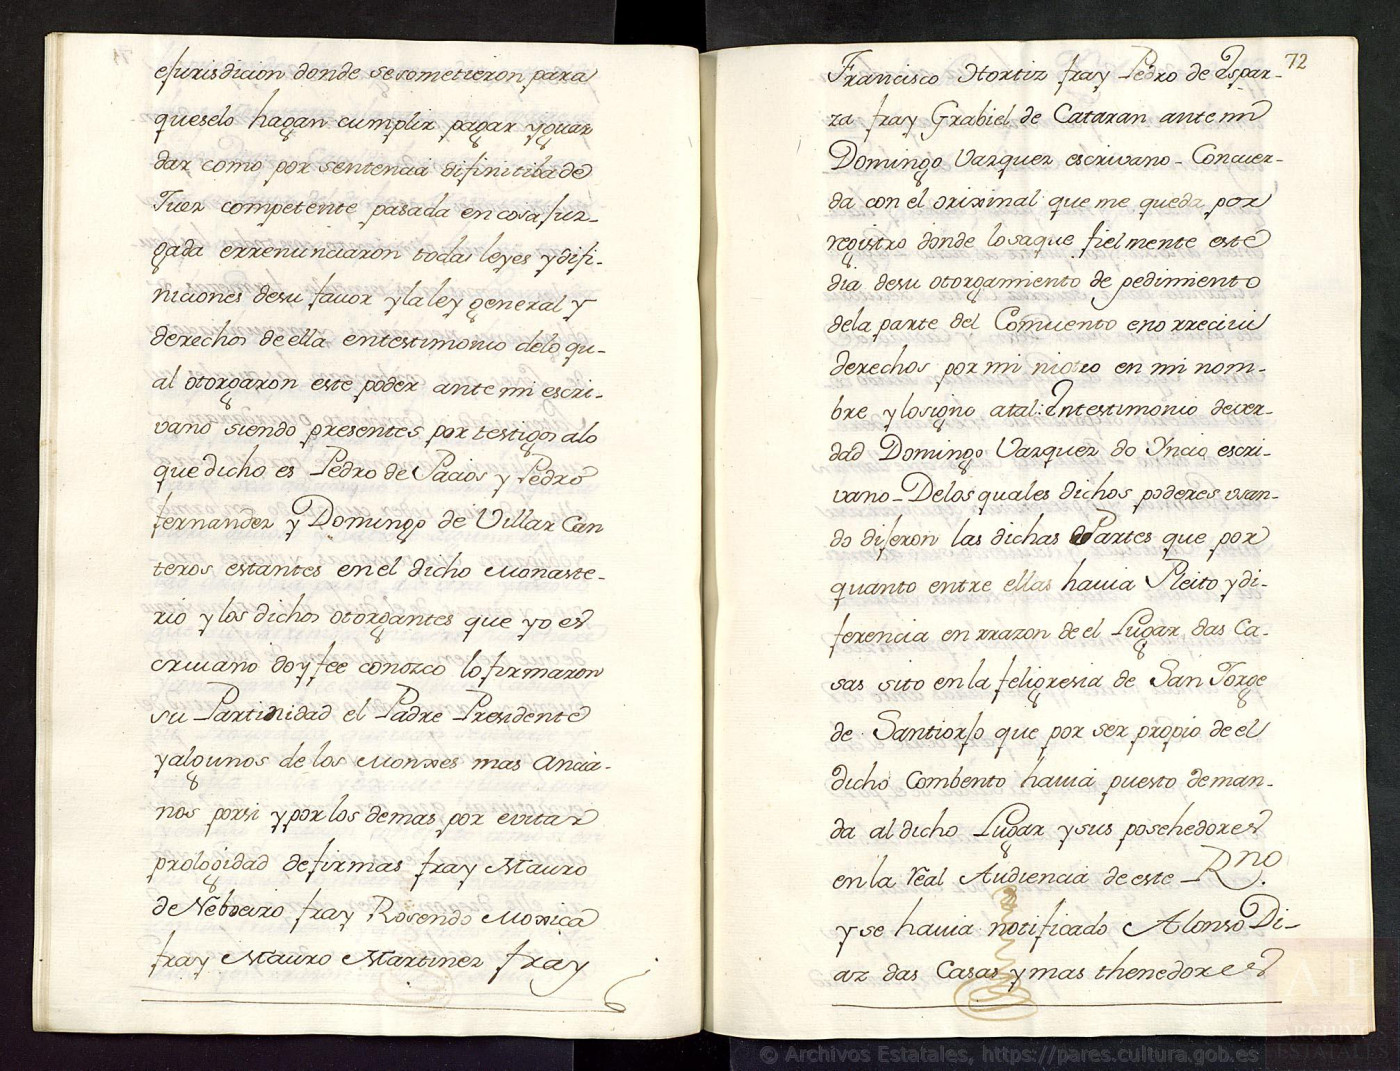 ejurisdicion donde sesometieron para
queselo hagan cumplir pagar yguar
dar como por sentencia difinitibade
Juez competente pasada en cosa juz-
gada errenunciaron todas leyes y difi-
niciones desu favor y la ley general y
derechos de ella entestimonio delo qu-
al otorgaron este poder ante mi escri-
vano siendo presentes por testigos alo
que dicho es Pedro de Pacios y Pedro
fernandez y Domingo de Villar Can
teros estantes en el dicho Monaste-
rio y los dichos otorgantes que yo es
crivano doy fee conozco lo firmaron
su Partinidad el Padre Presidente
y algunos de los Monxes mas Ancia-
nos porsi y por los demas por evitar
prologidad de firmas fray Mauro
de Nebreiro fray Rosendo Moxica
fray Mauro Martinez fray
72
Francisco Hortiz fray Pedro de Espar-
za fray Grabiel de Cataran ante mi
Domingo Vazquez escrivano - Concuer-
da con el orixinal que me queda por
registro donde lo saque fielmente este
dia desu otorgamiento de pedimiento
dela parte del Comvento eno rrecivi
derechos por mi en mi nom-
bre y lo signo atal: Intestimonio de ver-
dad Domingo Vazquez do Yncio escri-
vano - Delos quales dichos poderes usan-
do dijeron las dichas Partes que por
quanto entre ellas havia Pleito y di-
ferencia en rrazon de el Lugar das Ca-
sas sito en la feligresia de San Jorge
de Santiorjo que por ser propio de el
dicho Combento havia puesto deman-
da al dicho Lugar y sus posehedores
en la Real Audiencia de este Rno.
y se havia notificado Alonso Di-
az das Casas y mas thenedores
© Archivos Estatales, https://pares.cultura.gob.es
AE
ARCHIVOS
ESTATALES